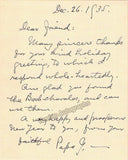 Dec. 26. 1935.
Dear Friend:
Many sincere thanks
for you kind holiday
greeting, to which I
respond whole-heartedly.
Am glad you found
the Bookshandes, and can
use them.
A happy and prosperous
New Year to you, from
your
faithful Papa